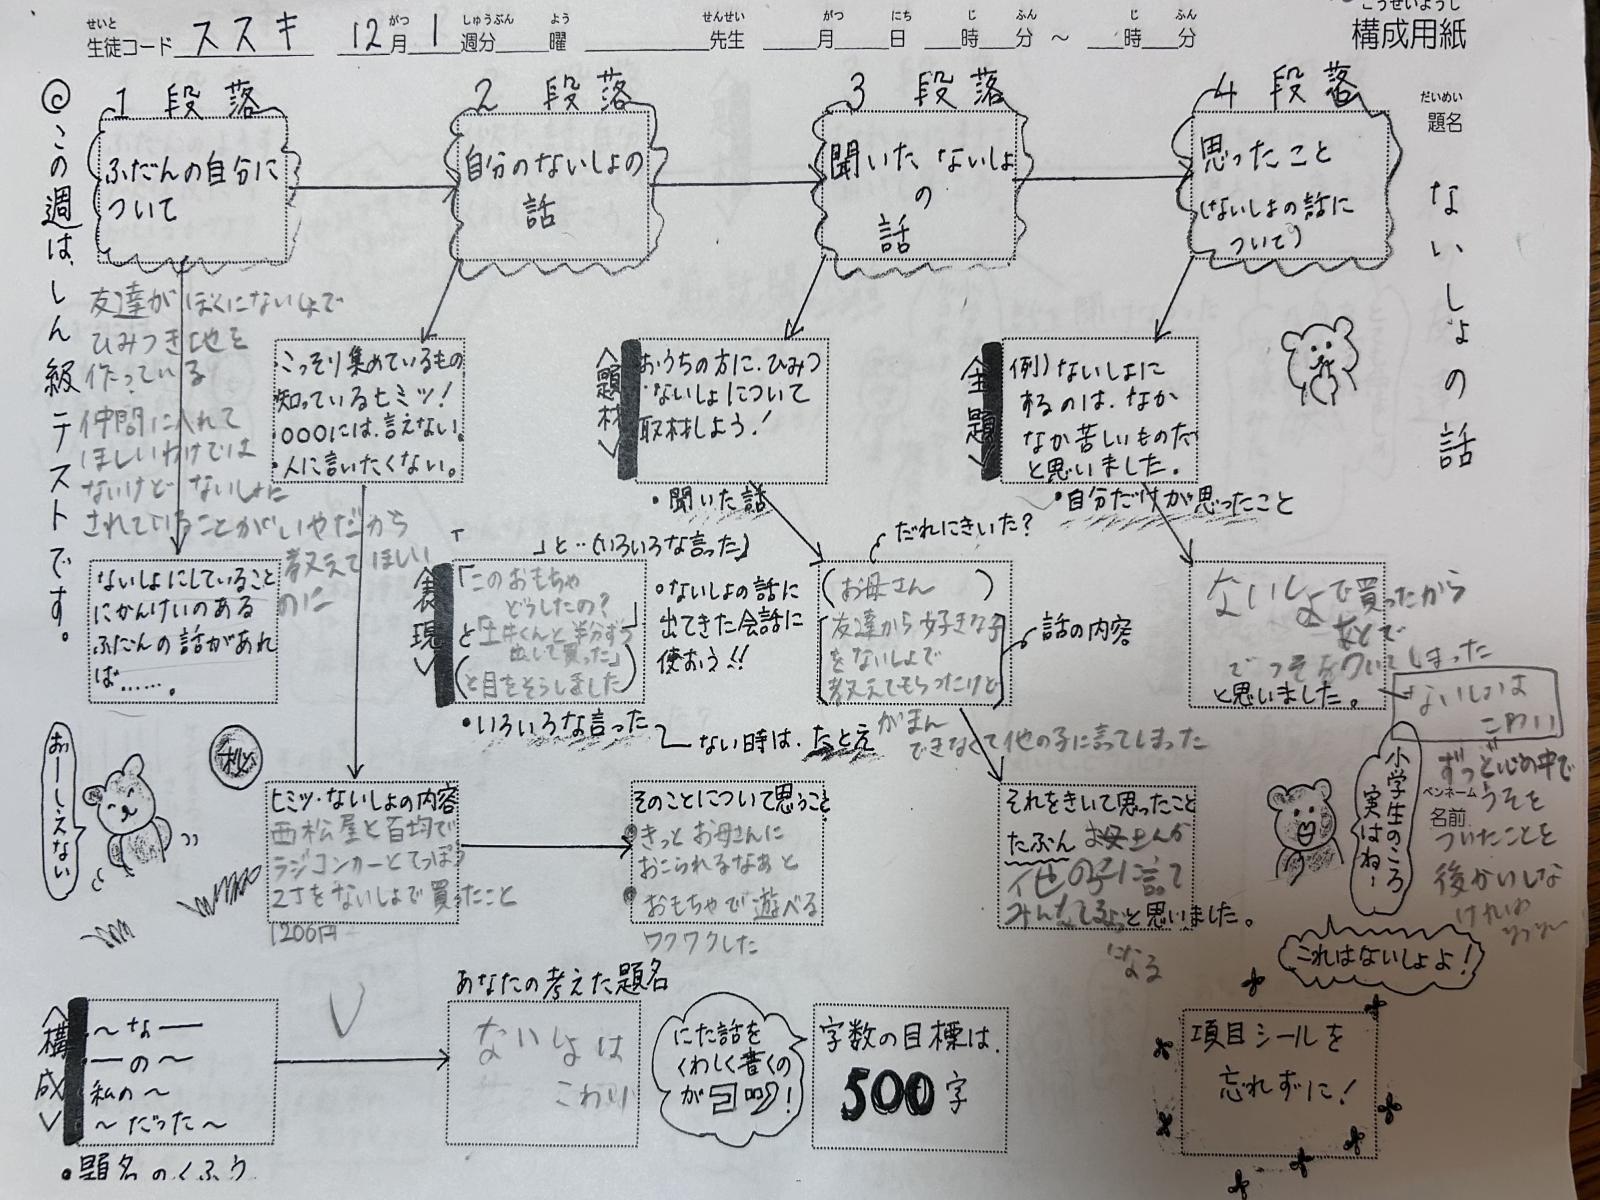 せいと がつ しゅうぶん よう せんせい がつ にち じ ふん じ ふん
生徒コード ススキ 12月 1 週分 曜 先生 月 日 時 分 ～ 時 分
こうせいようし
構成用紙
だいめい
題名
ないしょの話
◎この週は、しん級テストです。
1 段落
ふだんの自分に
ついて
2 段落
自分のないしょの
話
3 段落
聞いた ないしょ
の
話
4 段落
思ったこと
(ないしょの話に
ついて)
友達が ぼくにないしょで
ひみつき地を
作っている
仲間に入れて
ほしいわけでは
ないけど ないしょに
されていることがいやだから
教えてほしい
のに
ないしょにしていること
にかんけいのある
ふだんの話があれ
ば……。
・こっそり集めているもの
・知っているヒミツ!
・○○○には、言えない。
・人に言いたくない。
〈題材〉
おうちの方に、ひみつ
・ないしょについて
取材しよう!
・聞いた話
〈主題〉
例)ないしょに
するのは、なか
なか苦しいものだ
と思いました。
・自分だけが思ったこと
「 」と…(いろいろな言った)
〈表現〉
「このおもちゃ
どうしたの?」
と「土井くんと半分ずつ
出して買った」
(と目をそらしました)
・いろいろな言った
ない時は、たとえ
○ないしょの話に
出てきた会話に
使おう!!
だれにきいた?
(お母さん )
友達から好きな子
をないしょで
教えてもらったけど
がまん
できなくて他の子に言ってしまった
話の内容
ないしょで買ったから
あとで
でうそをついてしまった
と思いました。
ないしょは
こわい
ずっと心の中で
うそを
ついたことを
後かいしな
ペンネーム
名前
小学生のころ
実はね～
おーしえない
秘
ヒミツ・ないしょの内容
西松屋と百均で
ラジコンカーとてっぽう
2丁をないしょで買ったこと
1200円
そのことについて思うこと
きっとお母さんに
おこられるなぁと
おもちゃで遊べる
ワクワクした
それをきいて思ったこと
たぶん お母さんが
他の子に言って
と思いました。
になる
これはないしょよ!
〈構成〉
～な——
——の～
私の～
～だった～
・題名のくふう
あなたの考えた題名
ないしょは
こわい
にた話を
くわしく書くの
が
字数の目標は、
500字
項目シールを
忘れずに!